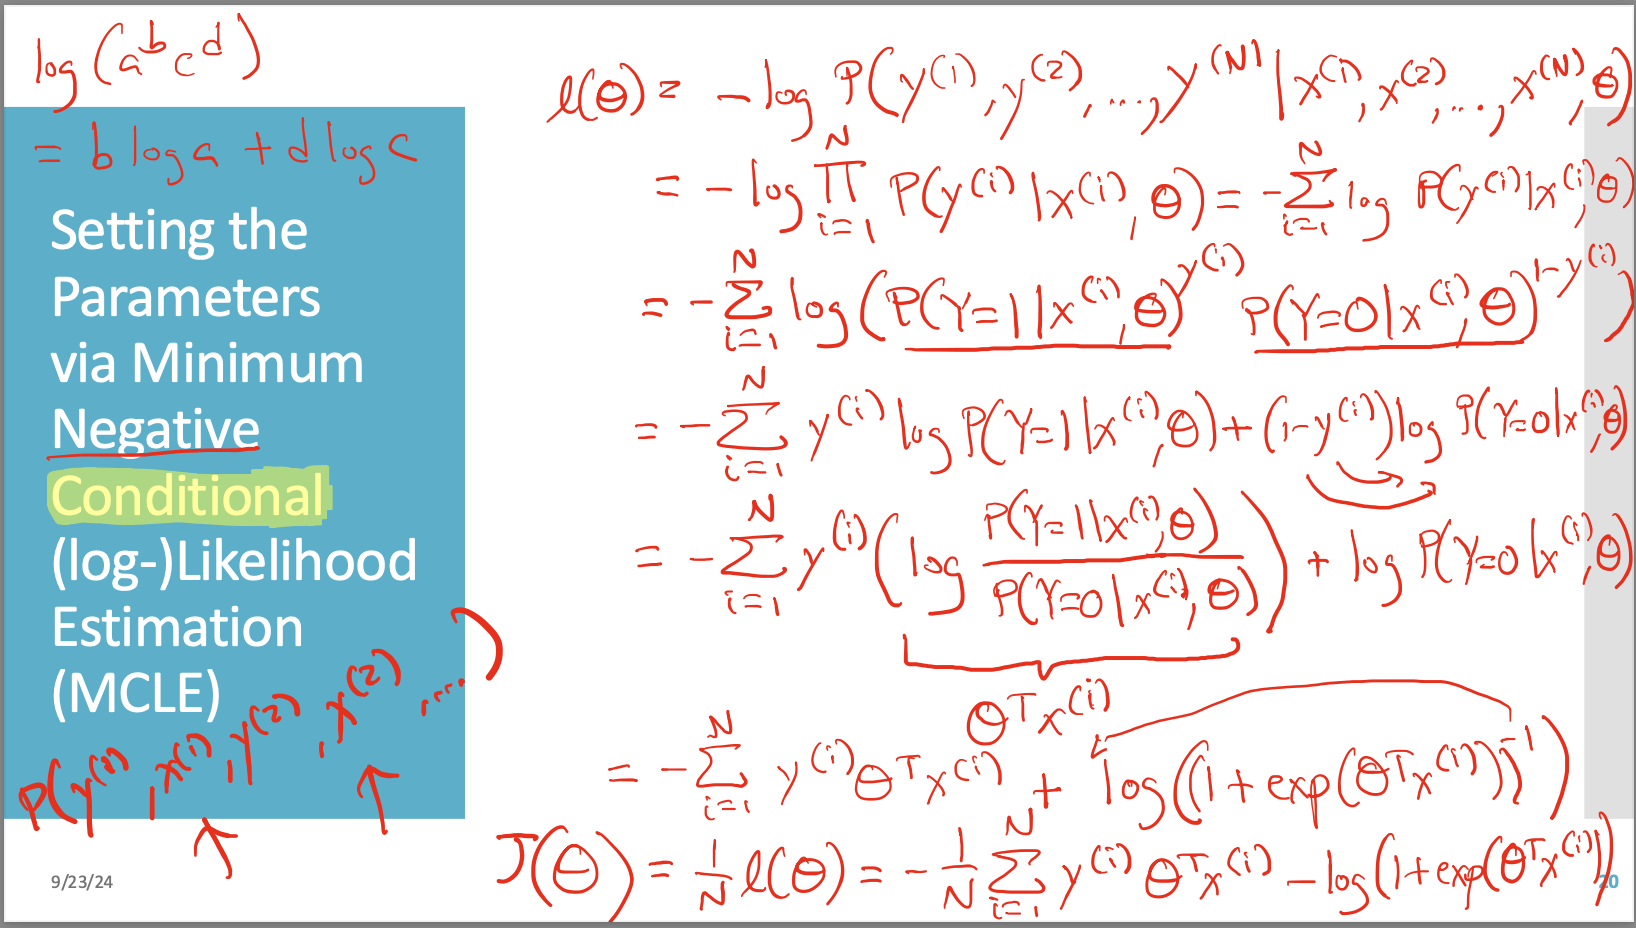 log(a^b c^d)
= b log a + d log c
Setting the
Parameters
via Minimum
Negative
Conditional
(log-)Likelihood
Estimation
(MCLE)
P(y^(1), x^(1), y^(2), x^(2), ....)
9/23/24
l(θ) = - log P(y^(1), y^(2), ...., y^(N) | x^(1), x^(2), ..., x^(N), θ)
= - log ∏_{i=1}^N P(y^(i) | x^(i), θ) = - Σ_{i=1}^N log P(y^(i) | x^(i), θ)
= - Σ_{i=1}^N log (P(Y=1 | x^(i), θ)^{y^(i)} P(Y=0 | x^(i), θ)^{1-y^(i)})
= - Σ_{i=1}^N y^(i) log P(Y=1 | x^(i), θ) + (1-y^(i)) log P(Y=0 | x^(i), θ)
= - Σ_{i=1}^N y^(i) (log P(Y=1 | x^(i), θ) / P(Y=0 | x^(i), θ)) + log P(Y=0 | x^(i), θ)
θ^T x^(i)
= - Σ_{i=1}^N y^(i) θ^T x^(i) + log((1 + exp(θ^T x^(i)))^-1)
J(θ) = 1/N l(θ) = - 1/N Σ_{i=1}^N y^(i) θ^T x^(i) - log(1 + exp(θ^T x^(i)))
20